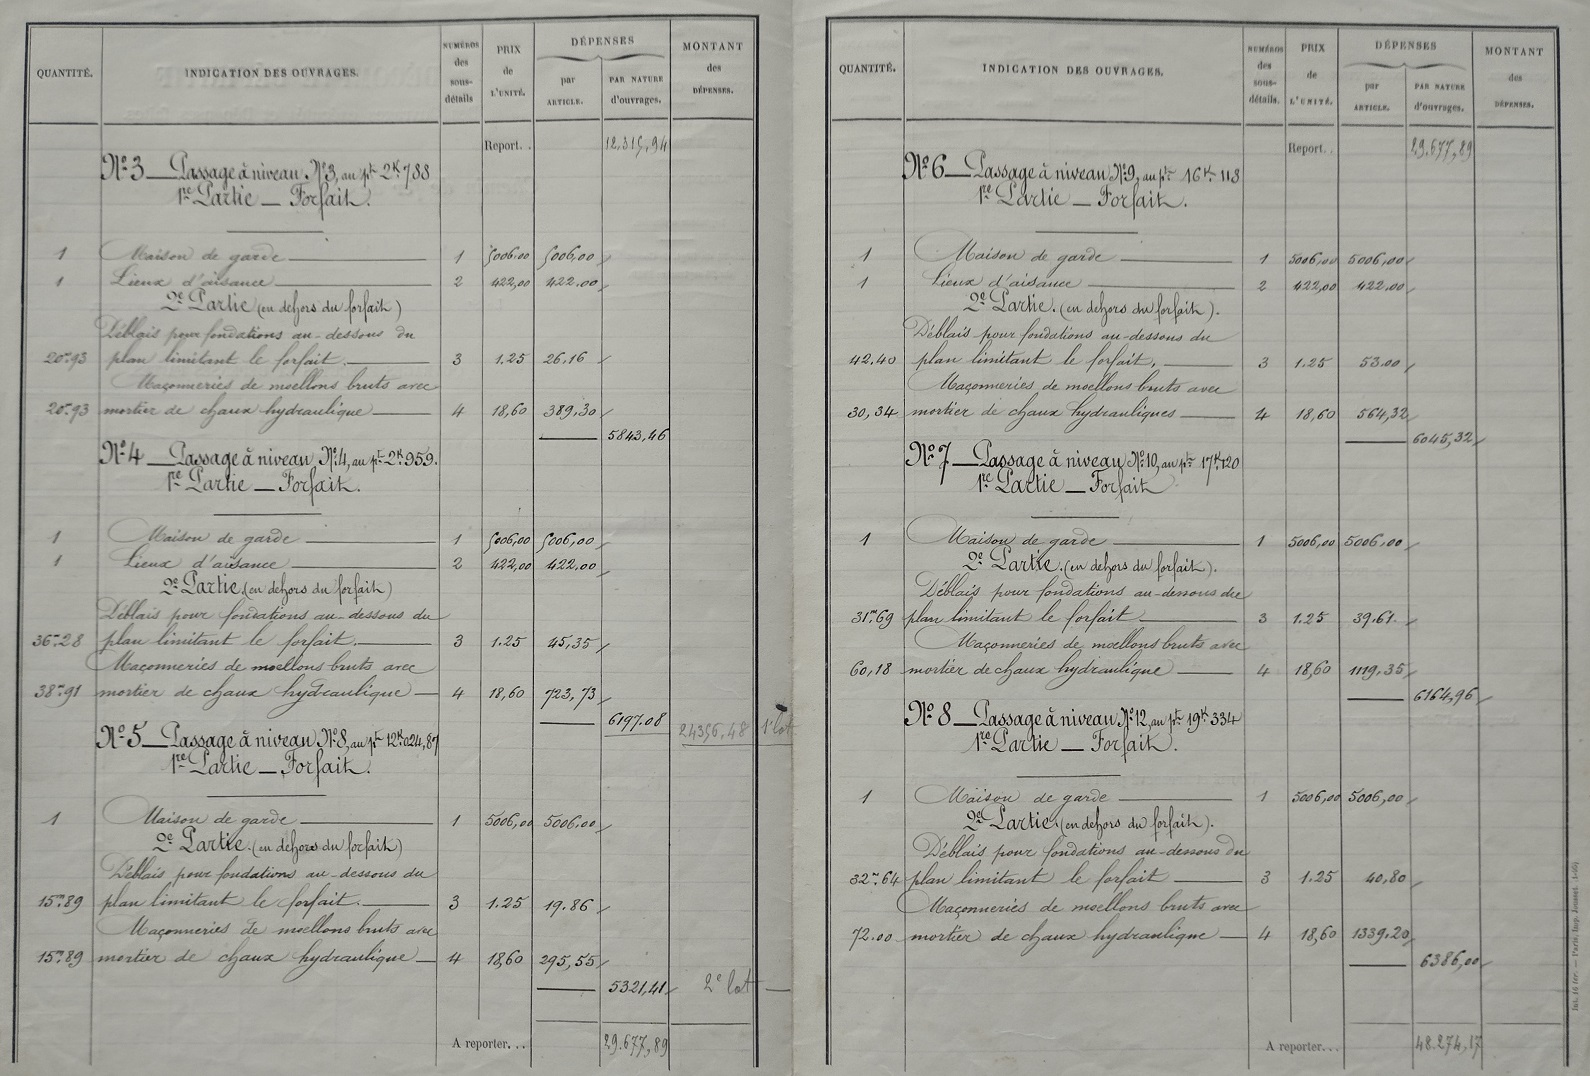 QUANTITÉ. INDICATION DES OUVRAGES. NUMÉROS des sous-détails PRIX de L'UNITÉ. DÉPENSES par ARTICLE. PAR NATURE d'ouvrages. MONTANT des DÉPENSES.
Report. . 12.315,94
Nº 3 — Passage à niveau Nº 3, au pt 2K 788
1re Partie — Forfait.
1 Maison de garde 1 5006,00 5006,00
1 Lieux d'aisance 2 422,00 422.00
2e Partie (en dehors du forfait)
Déblais pour fondations au-dessous du
20m.93 plan limitant le forfait. 3 1.25 26,16
Maçonneries de moellons bruts avec
20m.93 mortier de chaux hydraulique 4 18,60 389,30
5843,46
Nº 4 — Passage à niveau Nº 4, au pt 2K.959.
1re Partie — Forfait.
1 Maison de garde 1 5006,00 5006,00
1 Lieux d'aisance 2 422,00 422.00
2e Partie (en dehors du forfait)
Déblais pour fondations au-dessous du
36m.28 plan limitant le forfait. 3 1.25 45,35
Maçonneries de moellons bruts avec
38m.91 mortier de chaux hydraulique 4 18,60 723,73
6197.08 24356,48 1er lot
Nº 5 — Passage à niveau Nº 8, au pt 12K.024,87
1re Partie — Forfait.
1 Maison de garde 1 5006,00 5006.00
2e Partie. (en dehors du forfait)
Déblais pour fondations au-dessous du
15m.89 plan limitant le forfait. 3 1.25 19.86
Maçonneries de moellons bruts avec
15m.89 mortier de chaux hydraulique 4 18,60 295,55
5321,41 2e lot —
A reporter. . . 29.677,89
QUANTITÉ. INDICATION DES OUVRAGES. NUMÉROS des sous-détails. PRIX de L'UNITÉ. DÉPENSES par ARTICLE. PAR NATURE d'ouvrages. MONTANT des DÉPENSES.
Report. . 29.677,89
Nº 6 — Passage à niveau Nº 9, au pt 16K. 113
1re Partie — Forfait.
1 Maison de garde 1 5006,00 5006,00
1 Lieux d'aisance 2 422,00 422.00
2e Partie. (en dehors du forfait).
Déblais pour fondations au-dessous du
42.40 plan limitant le forfait. 3 1.25 53.00
Maçonneries de moellons bruts avec
30,34 mortier de chaux hydrauliques 4 18,60 564,32
6045,32
Nº 7 — Passage à niveau Nº 10, au pt 17K 120
1re Partie — Forfait
1 Maison de garde 1 5006,00 5006,00
2e Partie. (en dehors du forfait).
Déblais pour fondations au-dessous du
31m.69 plan limitant le forfait 3 1.25 39.61.
Maçonneries de moellons bruts avec
60,18 mortier de chaux hydraulique 4 18,60 1119,35
6164,96
Nº 8 — Passage à niveau Nº 12, au pt 19K 334
1re Partie — Forfait.
1 Maison de garde 1 5006,00 5006,00
2e Partie. (en dehors du forfait).
Déblais pour fondations au-dessous du
32m.64 plan limitant le forfait 3 1.25 40,80
Maçonneries de moellons bruts avec
72.00 mortier de chaux hydraulique 4 18,60 1339.20
6386,00
A reporter. . . 48.274,17